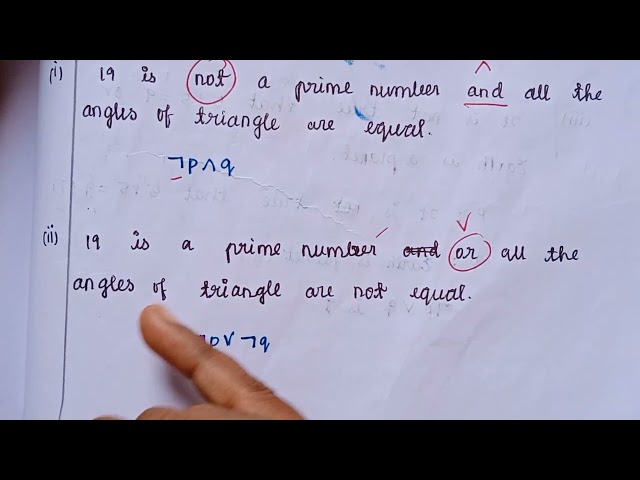 (i) 19 is not a prime number and all the
angles of triangle are equal.
¬p∧q
(ii) 19 is a prime number and or all the
angles of triangle are not equal.
p∨ ¬q